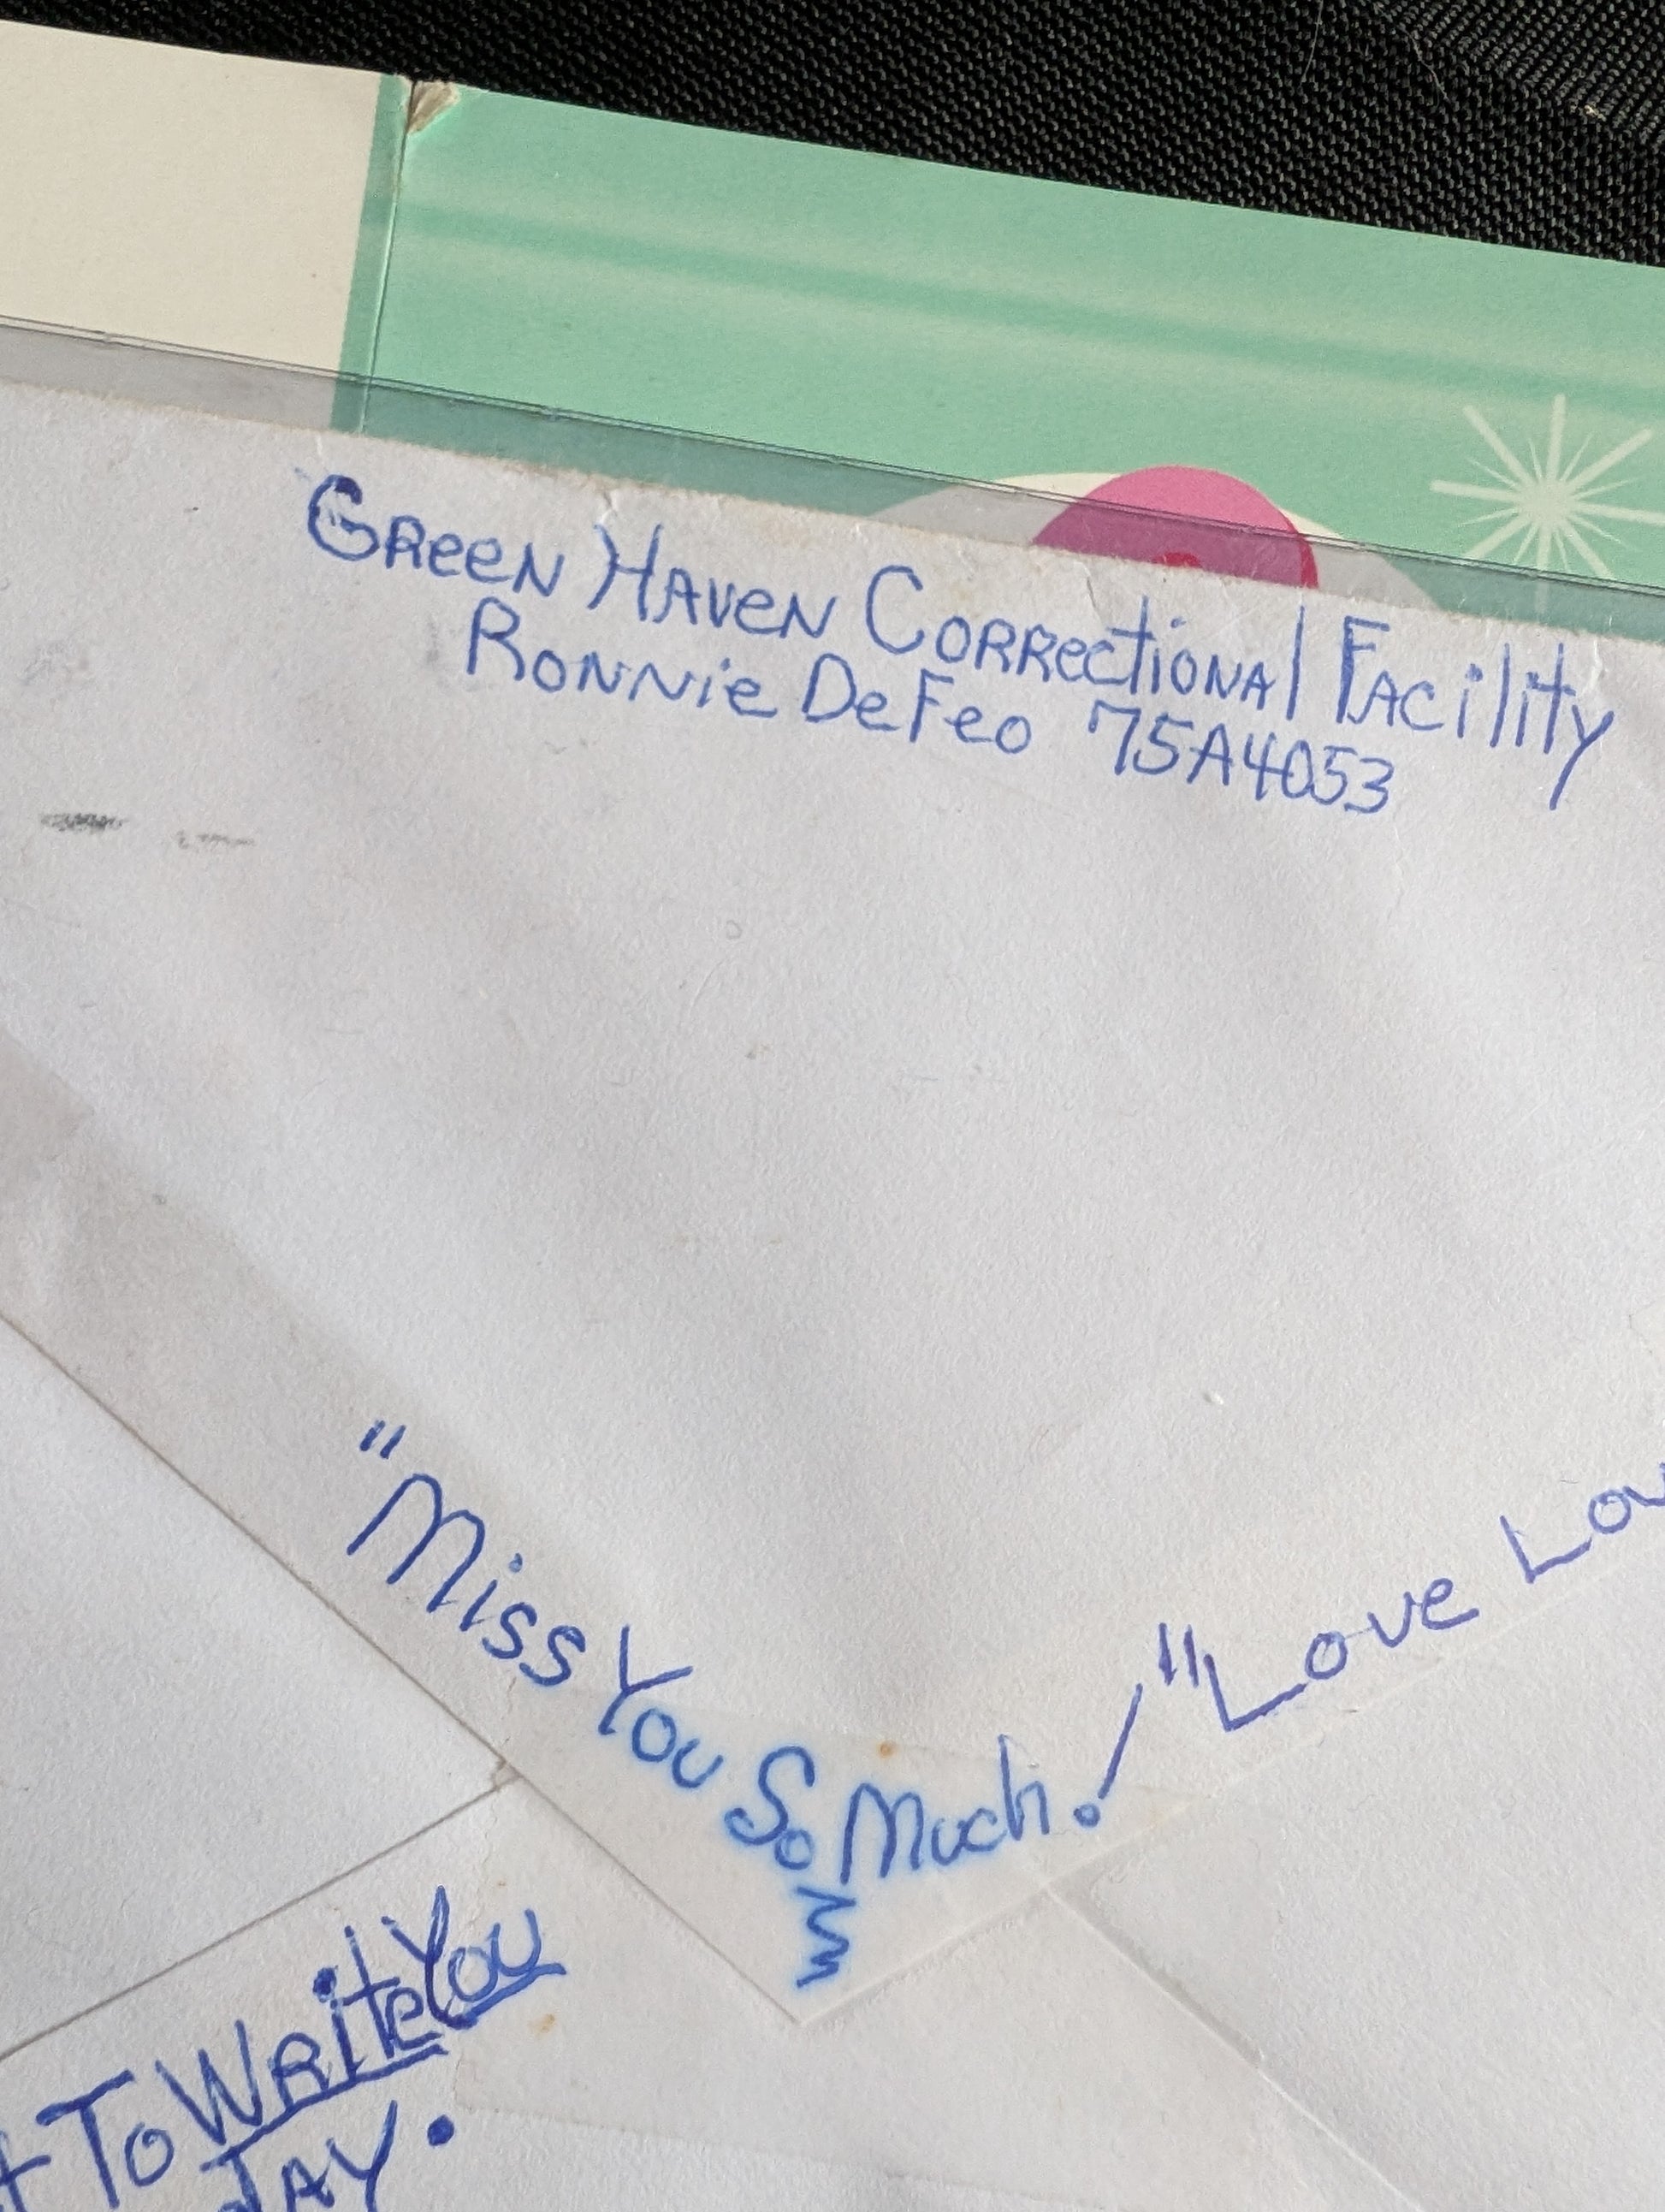 Green Haven Correctional Facility
Ronnie DeFeo 75A4053
"Miss You So Much! "Love
To Write You